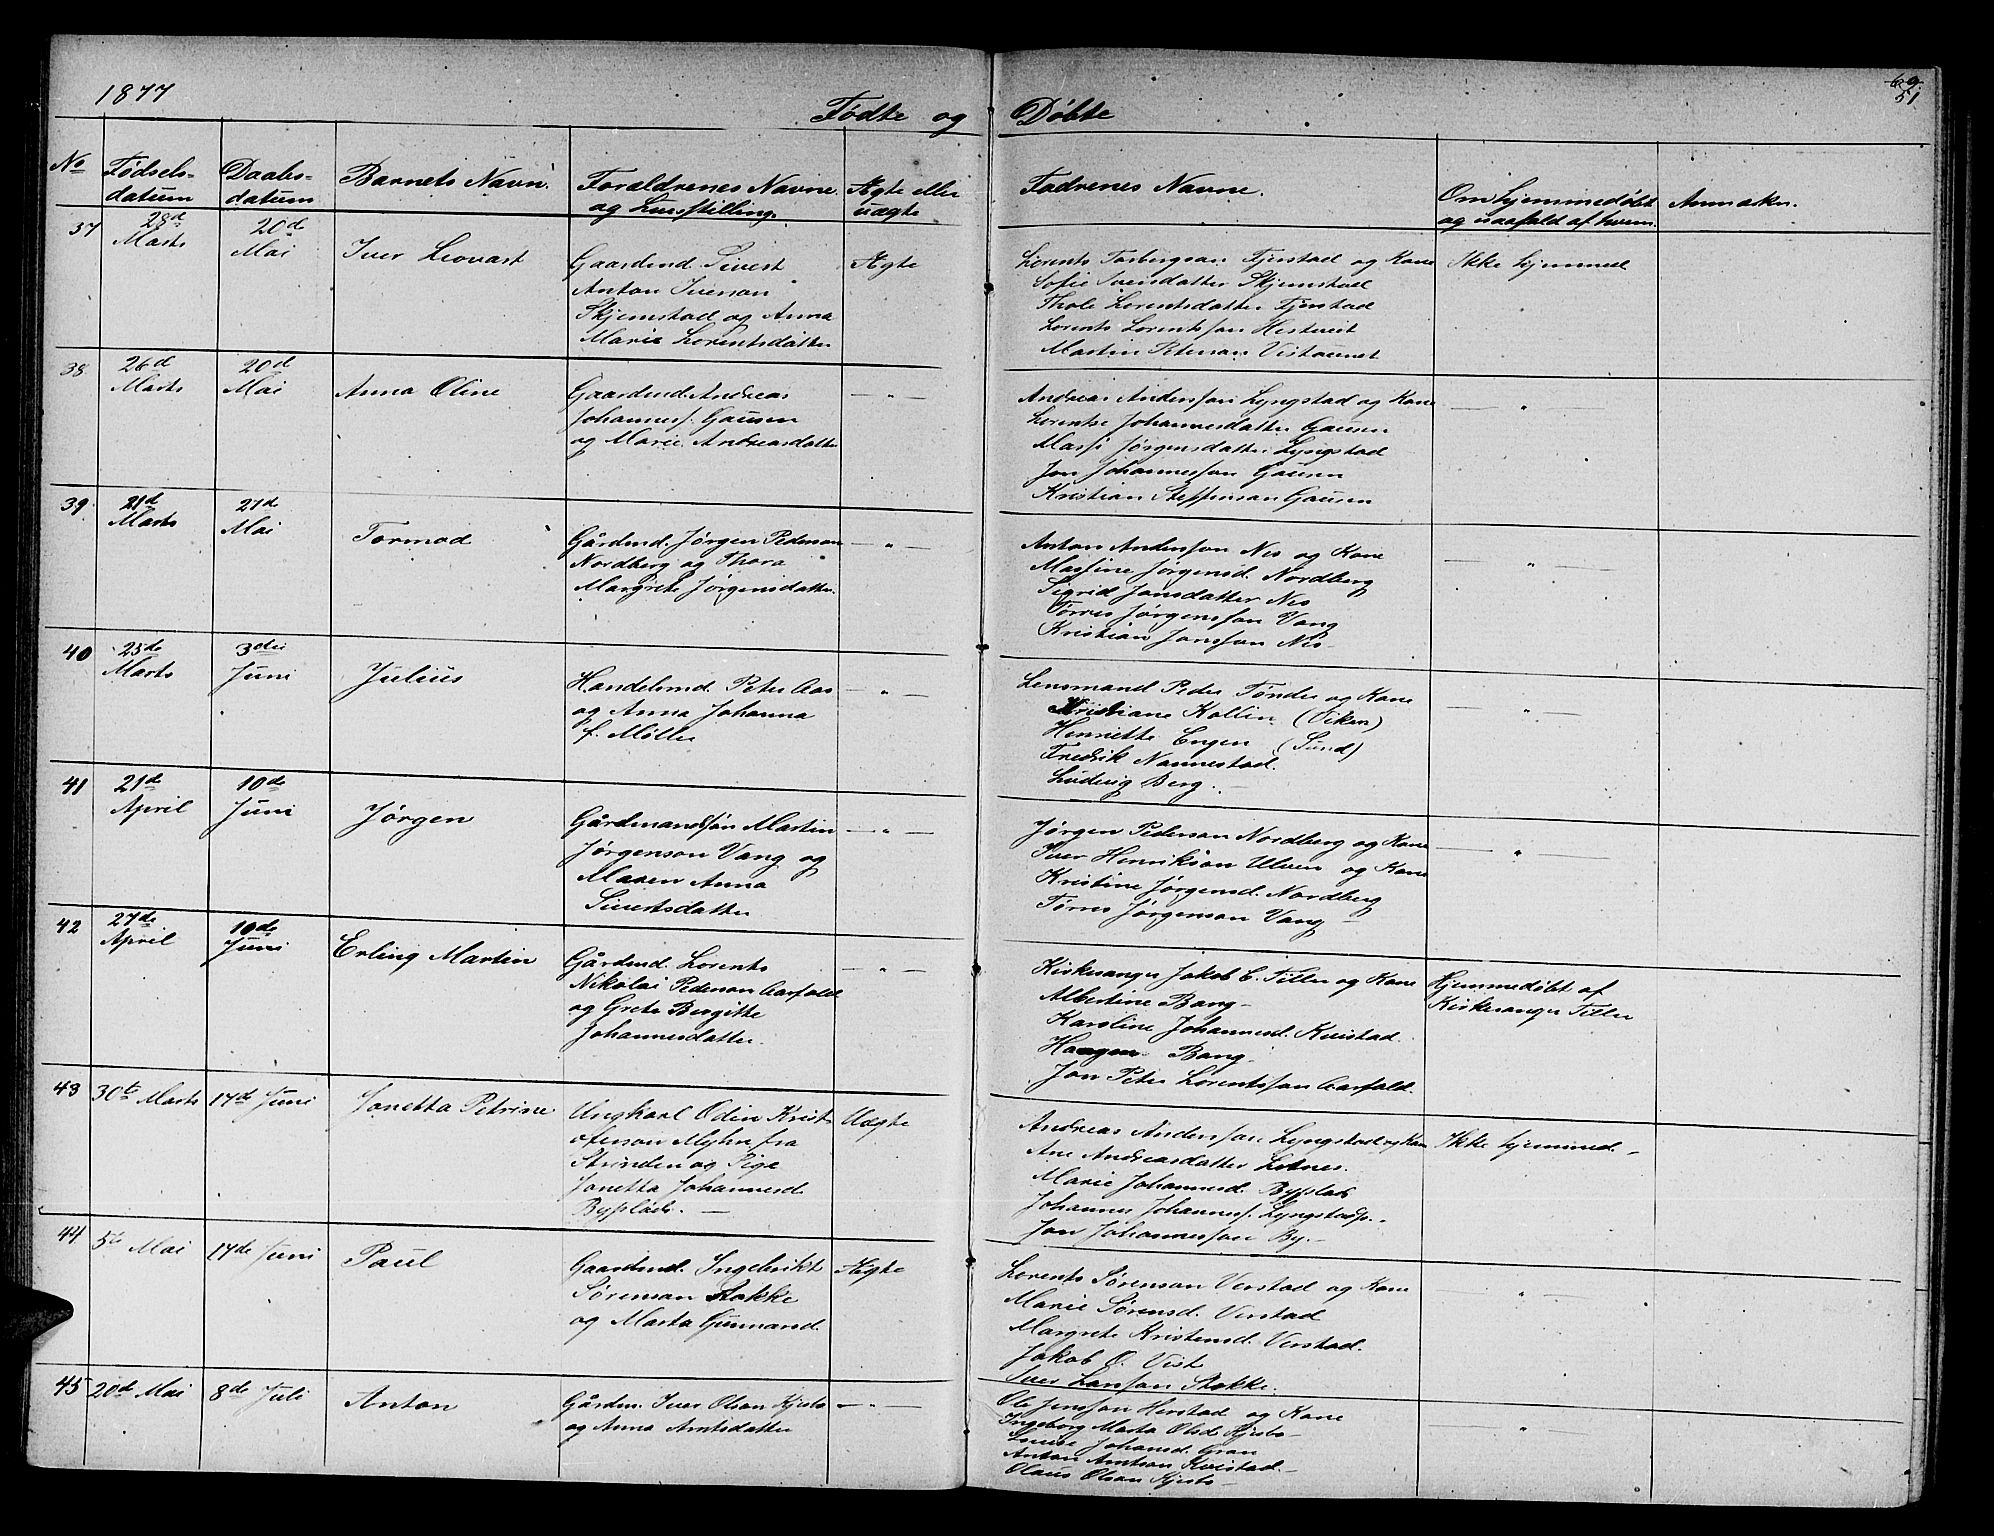 1877
69
51
Fødte og Døbte
No
Fødsels-
datum
Daabs-
datum
Barnets Navn.
Forældrenes Navne
og Livsstilling.
Ægte eller
uægte
Fadrenes Navne.
Om hjemmedøbt
og isaafald af hvem.
Anmærkn.
37
28de
Marts
20de
Mai
Iver Leonart
Gaardmd. Sivert
Anton Iverson
Skjemstad og Anna
Marie Lorentsdatter
Ægte
Lorents Torbergsen Fjerstad og Kone
Sofie Svensdatter Skjemstad
Thale Lorentsdatter Fjerstad
Lorents Lorentsson
Martin Peterson
Ikke hjemmed
38
26d
Marts
20d
Mai
Anna Oline
Gaardmd. Andreas
Johannesf. Gausen
og Marie Andreasdatter
— " —
Andreas Andersson Lyngstad og Kone
Lorentse Johannesdatter Gausen
Massi Jørgensdatter Lyngstad
Jon Johannesson Gausen
Kristian Steffenson Gausen
— " —
39
21d
Marts
27de
Mai
Tormod
Gårdmd. Jørgen Pederson
Nordberg og Thora
Margrete Jørgensdatter.
— " —
Anton Andersson Nes og Kone
Massine Jørgensd. Nordberg
Sigrid Jonsdatter Nes
Tørres Jørgensson Vang
Kristian Jonsson Nes
— " —
40
25de
Marts
3die
Juni
Julius
Handelsmd. Peter Aas
og Anna Johanna
f. Møller
— " —
Lensmand Peder Tønder og Kone
Kristiane Kollin (Viken)
Henriette Engen (Sund)
Fredrik Nannestad.
Ludvig Berg.
— " —
41
21d
April
10d
Juni
Jørgen
Gårdmandssøn Martin
Jørgenson Vang og
Maren Anna
Sivertsdatter
— " —
Jørgen Pederson Nordberg og Kone
Iver Henrikson Ulven og Kone
Kristine Jørgensd. Nordberg
Tørres Jørgenson Vang
— " —
42
27de
April
10de
Juni
Erling Martin
Gårdmd. Lorents
Nikolai Pederson Aarfald
og Grete Bergitte
Johannesdatter.
— " —
Kirkesanger Jakob C. Tiller og Kone
Albertine Bang
Karoline Johannesd. Kvistad.
Haagen Bang.
Jon Peter Lorentsson Aarfald.
Hjemmedøbt af
Kirkesanger Tiller
43
30te Marts
17d Juni
Jonetta Petrine
Ungkarl Odin Krist
oferson Myhr fra
Strinden og Pige
Jonetta Johannesd.
Byplads. —
Uægte
Andreas Andersson Lyngstad og Kone
Ane Andreasdatter Letnes.
Marie Johannesd. Byplads
Johannes Johannesf. Lyngstadp.
Jon Johannesson By.
Ikke hjemmed.
44
5te Mai
17de Juni
Paul
Gaardmd. Ingebrikt
Sørenson Stokke
og Marta Gunnarsd.
Ægte
Lorents Sørenson Verstad og Kone
Marie Sørensd. Verstad
Margrete Kristensd. Verstad.
Jakob O. Vist
Iver Larsson Stokke.
— " —
45
20d Mai
8de Juli
Anton
Gårdm. Iver Olson Hjesto
og Anna Arntsdatter
— " —
Ole Jensson Herstad og Kone
Ingeborg Marta Olsd.
Louise Johansd. Gran
Anton Arntson Kvistad.
Olaus Olson
— " —